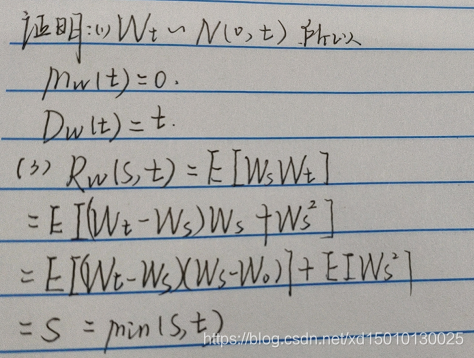 证明:(1) Wt ~ N(0,t) 所以
mw(t)=0.
Dw(t)=t.
(3) Rw(s,t) = E[WsWt]
= E[(Wt-Ws)Ws+Ws²]
= E[(Wt-Ws)(Ws-W0)]+E[Ws²]
= s = min(s,t)
https://blog.csdn.net/xd15010130025